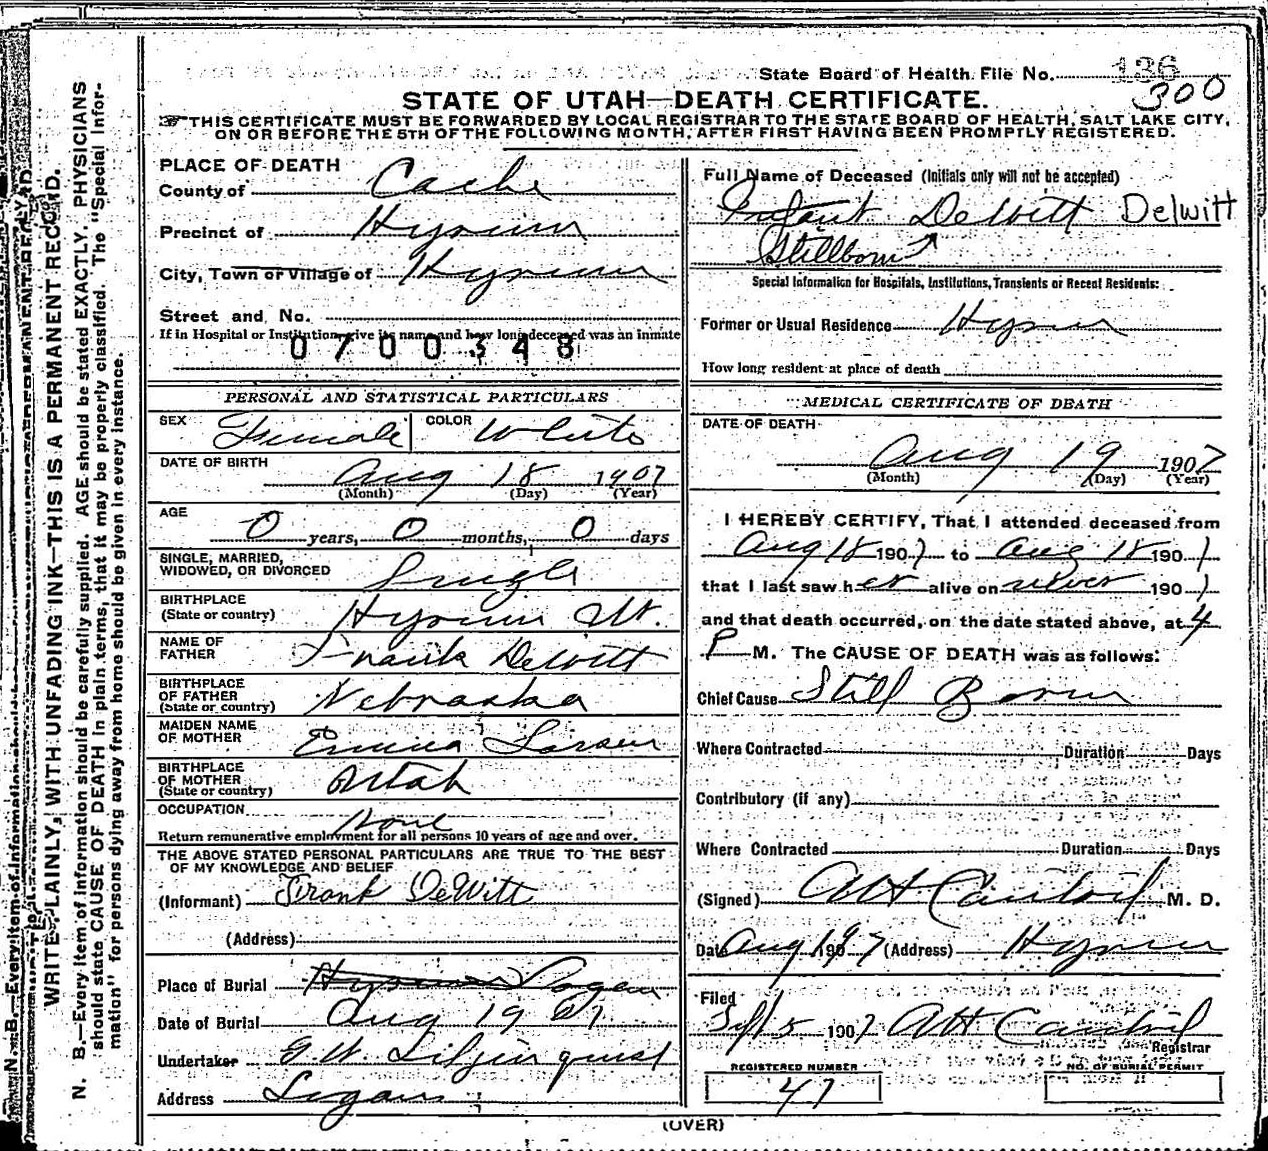 State Board of Health File No. 136
300
STATE OF UTAH—DEATH CERTIFICATE.
☞THIS CERTIFICATE MUST BE FORWARDED BY LOCAL REGISTRAR TO THE STATE BOARD OF HEALTH, SALT LAKE CITY,
ON OR BEFORE THE 5TH OF THE FOLLOWING MONTH, AFTER FIRST HAVING BEEN PROMPTLY REGISTERED.
PLACE OF DEATH
County of Cache
Precinct of Hyrum
City, Town or Village of Hyrum
Street and No.
If in Hospital or Institution, give its name and how long deceased was an inmate
0700348
PERSONAL AND STATISTICAL PARTICULARS
SEX Female COLOR White
DATE OF BIRTH Aug 18 1907
(Month) (Day) (Year)
AGE
0 years, 0 months, 0 days
SINGLE, MARRIED,
WIDOWED, OR DIVORCED Single
BIRTHPLACE
(State or country) Hyrum Ut.
NAME OF
FATHER Frank DeWitt
BIRTHPLACE
OF FATHER
(State or country) Nebraska
MAIDEN NAME
OF MOTHER Emma Larsen
BIRTHPLACE
OF MOTHER
(State or country) Utah
OCCUPATION None
Return remunerative employment for all persons 10 years of age and over.
THE ABOVE STATED PERSONAL PARTICULARS ARE TRUE TO THE BEST
OF MY KNOWLEDGE AND BELIEF
(Informant) Frank DeWitt
(Address)
Place of Burial Hyrum Logan
Date of Burial Aug 19 07
Undertaker G.W. Liljenquist
Address Logan
Full Name of Deceased (Initials only will not be accepted)
Infant DeWitt DeWitt
Stillborn
Special Information for Hospitals, Institutions, Transients or Recent Residents:
Former or Usual Residence Hyrum
How long resident at place of death
MEDICAL CERTIFICATE OF DEATH
DATE OF DEATH
Aug 19 1907
(Month) (Day) (Year)
I HEREBY CERTIFY, That I attended deceased from
Aug 18 1907 to Aug 18 1907
that I last saw her alive on never 1907
and that death occurred, on the date stated above, at 4
P M. The CAUSE OF DEATH was as follows:
Chief Cause Still Born
Where Contracted Duration Days
Contributory (if any)
Where Contracted Duration Days
(Signed) M. D.
Date Aug 19 1907 (Address) Hyrum
Filed
Sept 5 1907
Registrar
REGISTERED NUMBER
47
NO. OF BURIAL PERMIT
(OVER)
WRITE PLAINLY, WITH UNFADING INK—THIS IS A PERMANENT RECORD.
N. B.—Every item of information should be carefully supplied. AGE should be stated EXACTLY. PHYSICIANS
should state CAUSE OF DEATH in plain terms, that it may be properly classified. The "Special Infor-
mation" for persons dying away from home should be given in every instance.